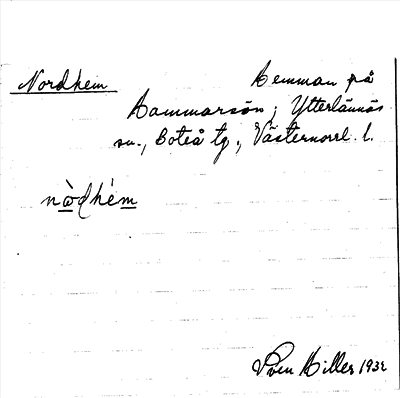 Nordhem Hemman på
Hammarsön; Ytterlännäs
sn., Boteå tg., Västernorrl. l.
nòdhém
Sven Hiller 1932